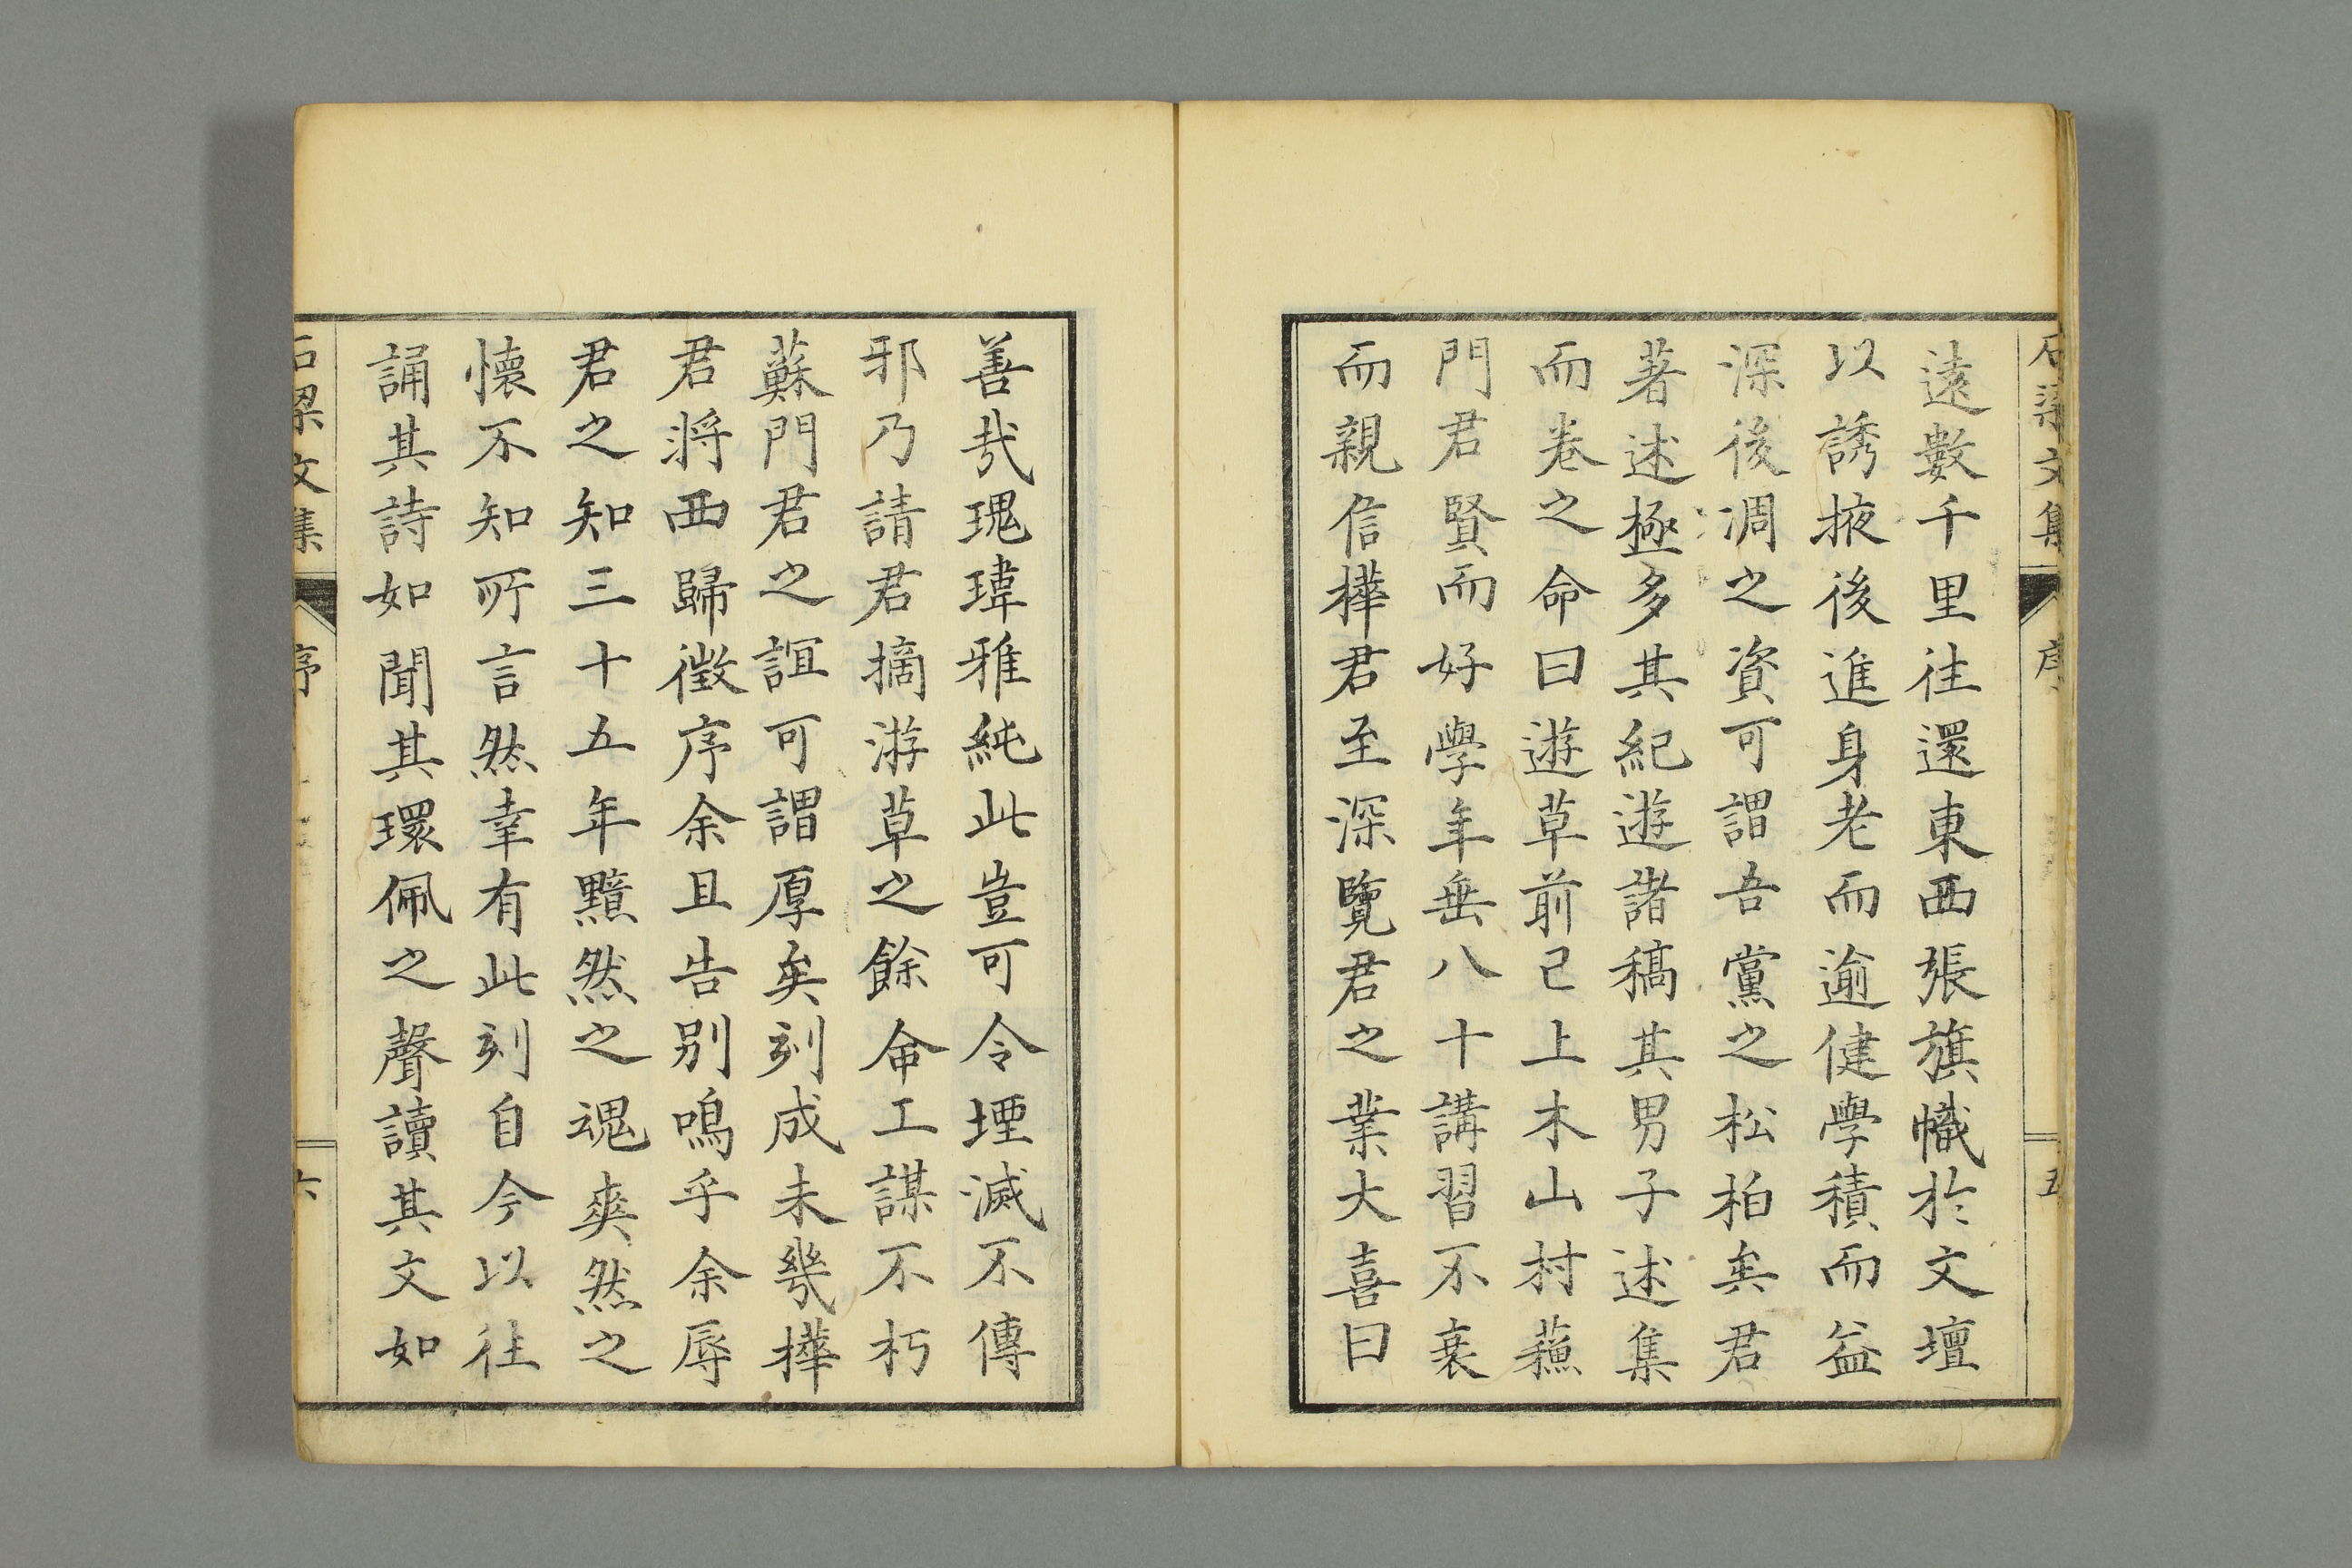 石梁文集 序 五
遠數千里往還東西張旗幟於文壇
以誘掖後進身老而逾健學積而益
深後凋之資可謂吾黨之松柏矣君
著述極多其紀遊諸稿其男子述集
而卷之命曰遊草前已上木山村蘓
門君賢而好學年垂八十講習不衰
而親信樺君至深覽君之業大喜曰
善哉瑰瑋雅純此豈可令堙滅不傳
邪乃請君摘游草之餘命工謀不朽
蘇門君之誼可謂厚矣刻成未幾樺
君將西歸徵序余且告別鳴乎余辱
君之知三十五年黯然之魂爽然之
懷不知所言然幸有此刻自今以往
誦其詩如聞其環佩之聲讀其文如
石梁文集 序 六